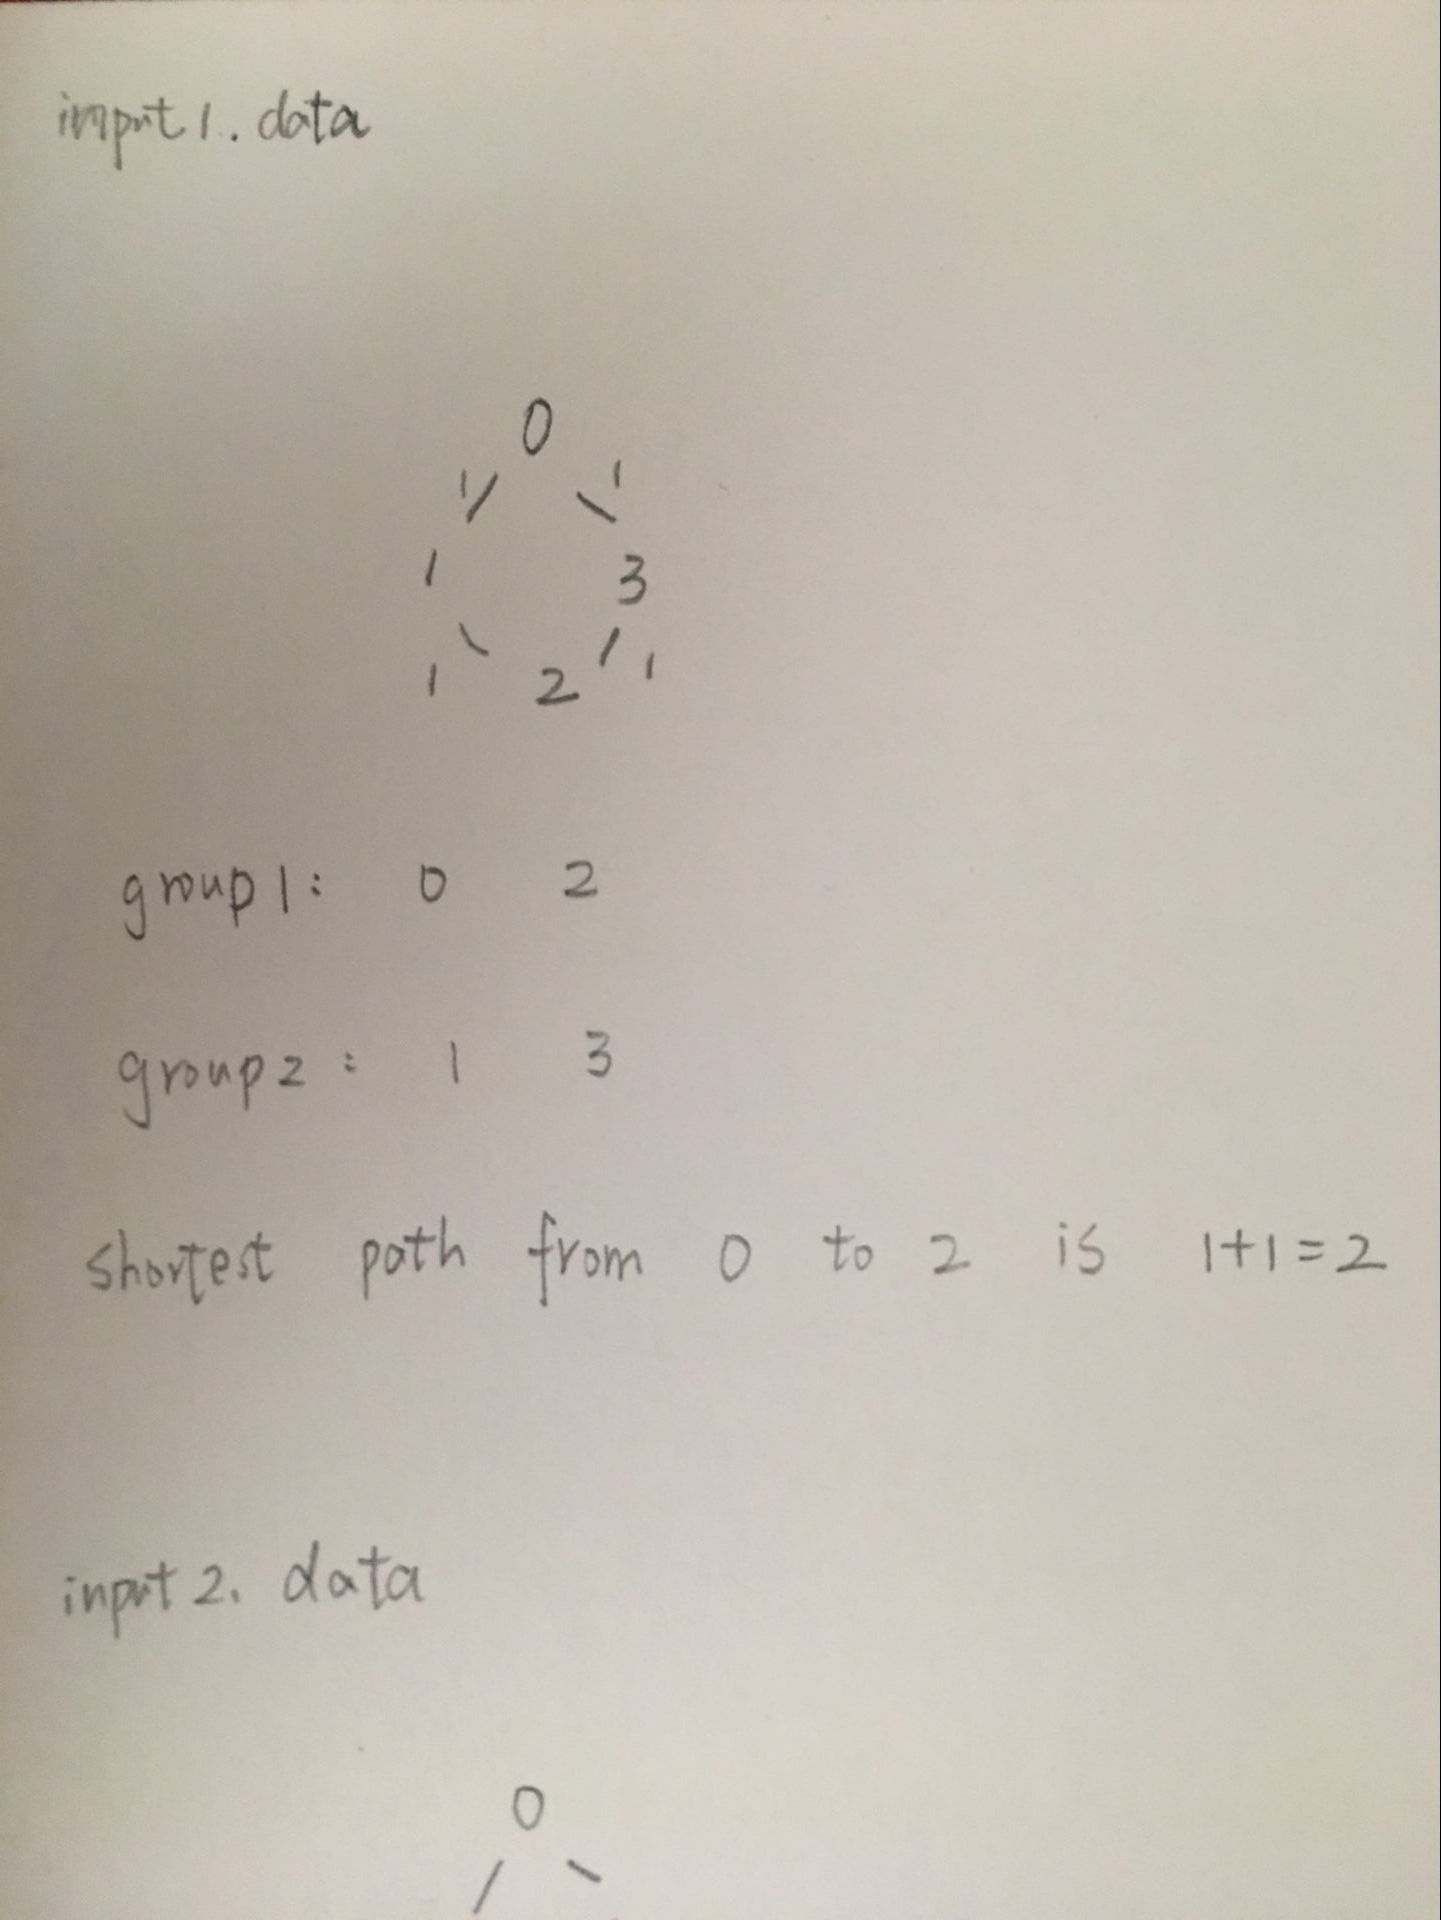 input1. data
0
1 1
1 3
1 2 1
group1: 0 2
group2: 1 3
shortest path from 0 to 2 is 1+1=2
input2. data
0